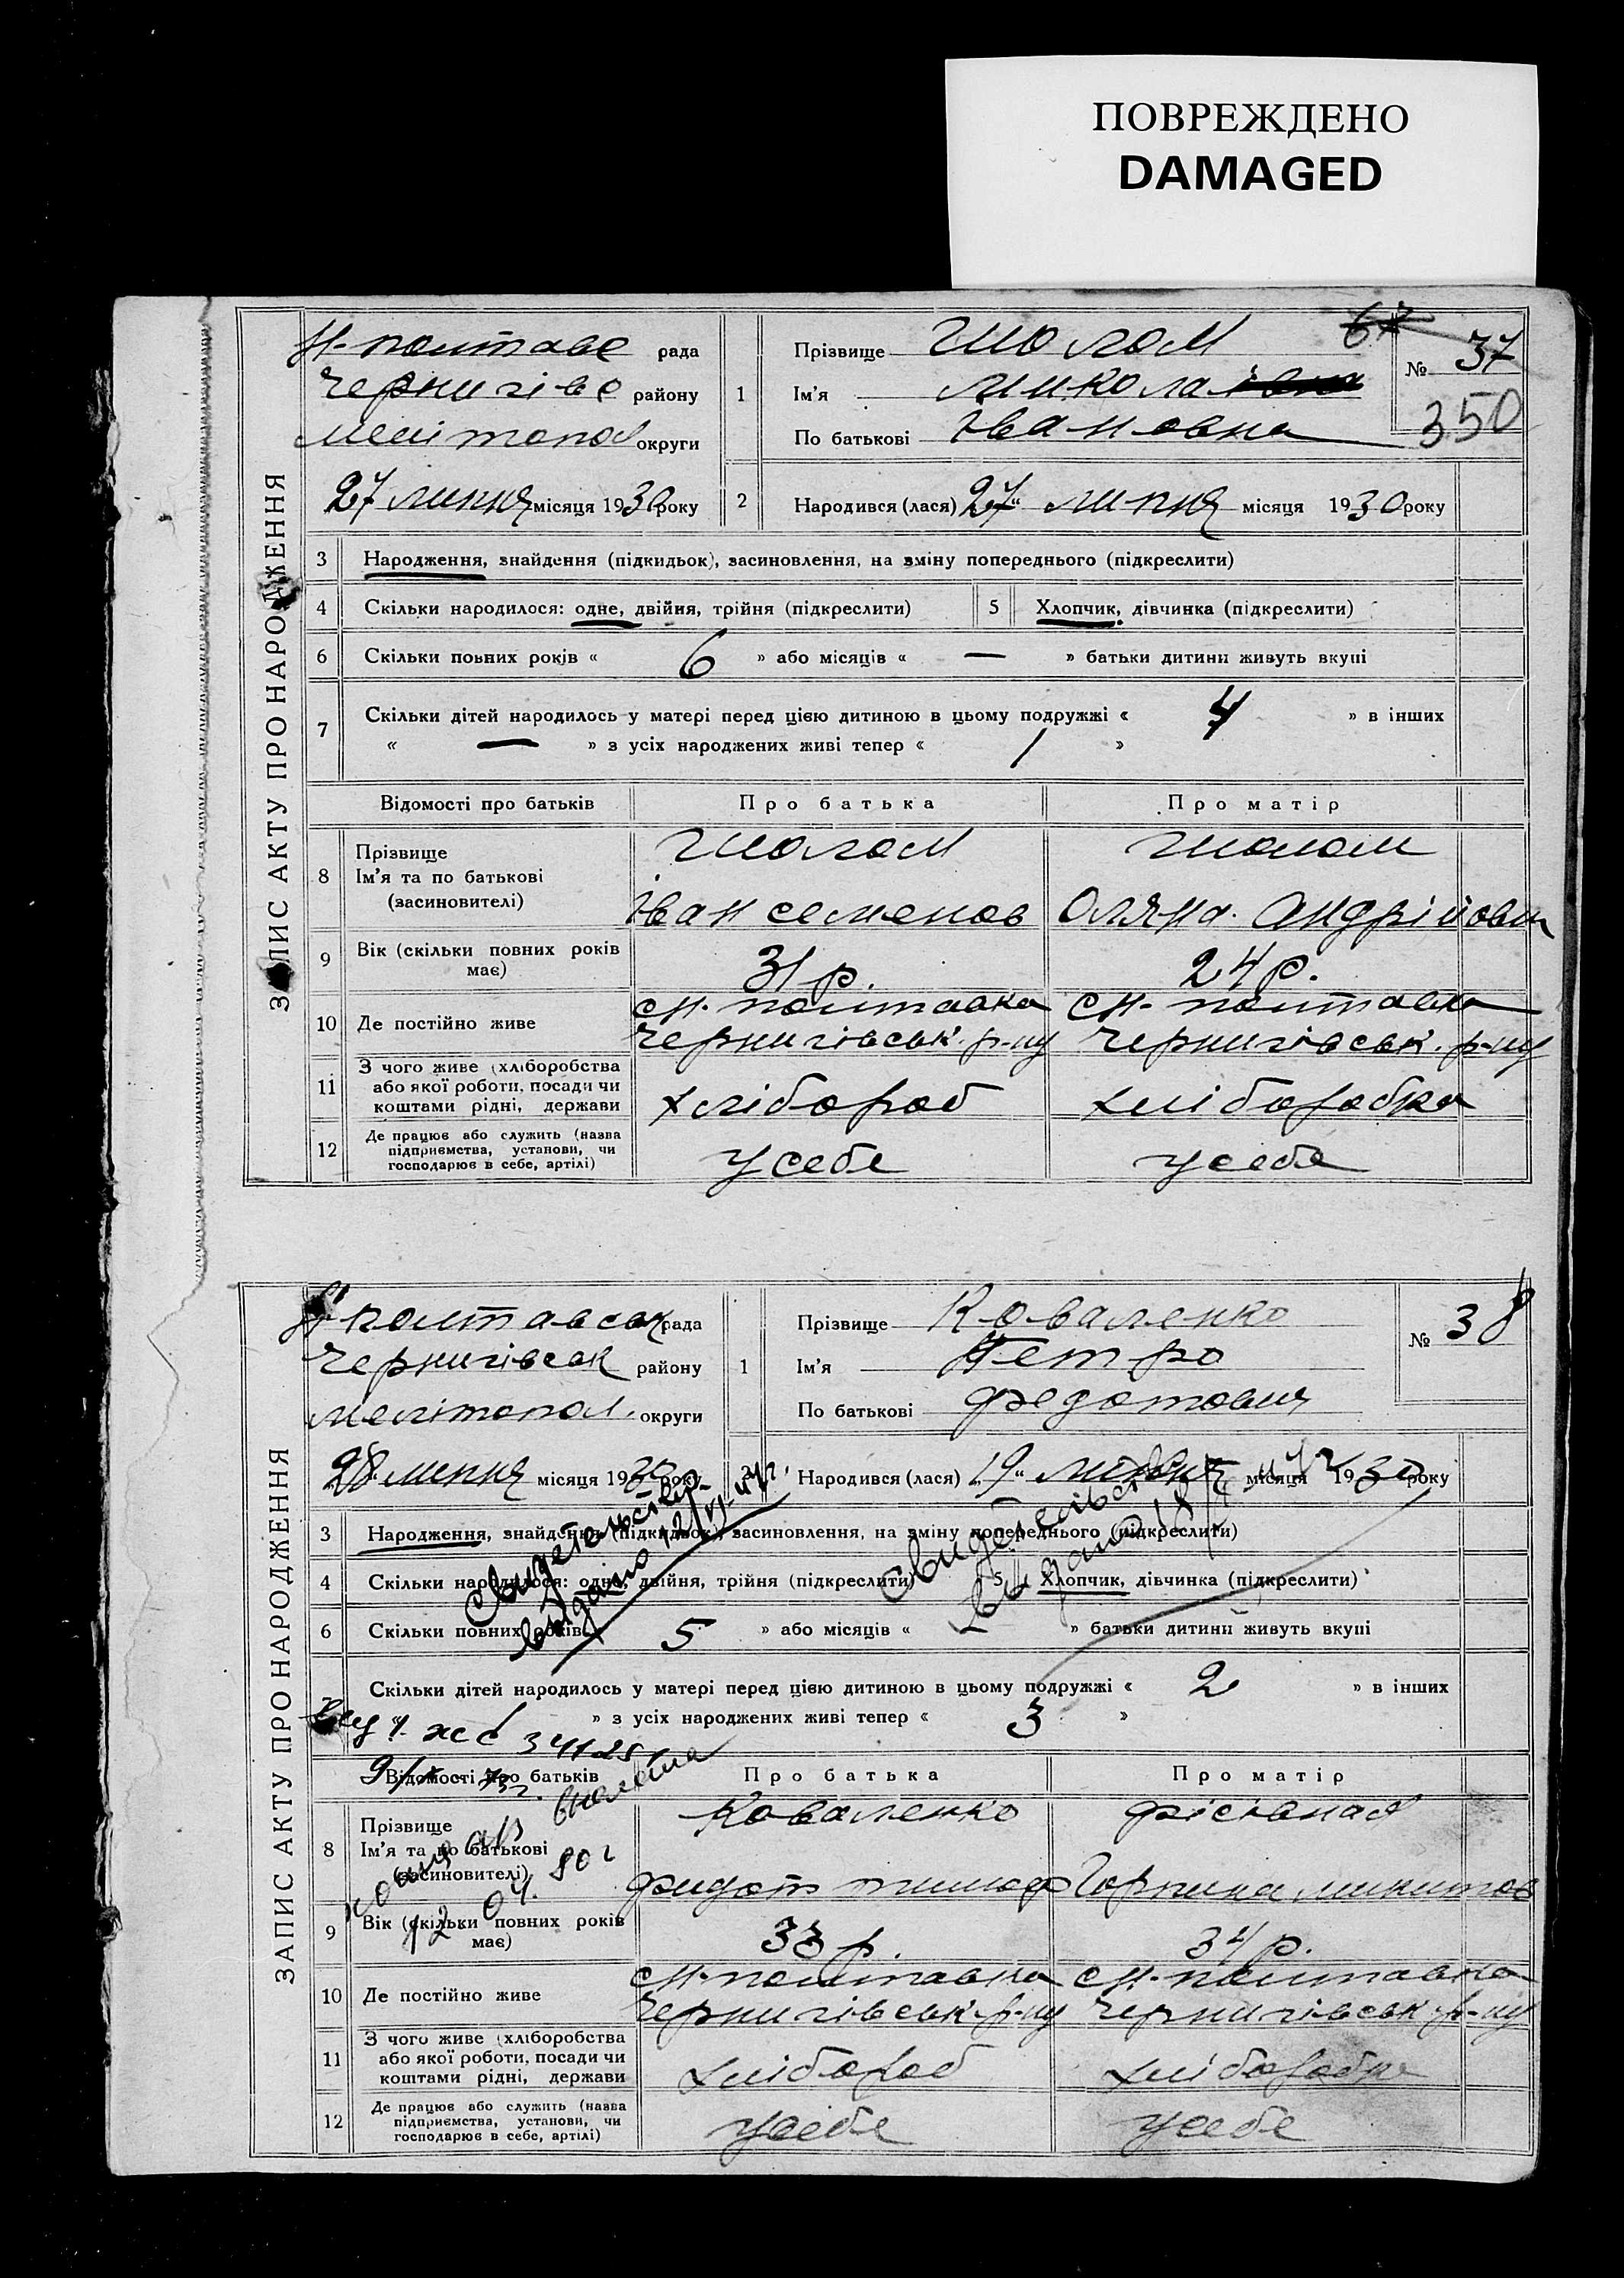 ПОВРЕЖДЕНО
DAMAGED
ЗАПИС АКТУ ПРО НАРОДЖЕННЯ
Н-полтавс рада
Чернигівс району
Мелітопол округи
27 липня місяця 1930 року
1 Прізвище Шолом
Ім'я Микола
По батькові Івановна
№ 37
350
2 Народився (лася) 27 " липня місяця 1930 року
3 Народження, знайдення (підкидьок), засиновлення, на зміну попереднього (підкреслити)
4 Скільки народилося: одне, двійня, трійня (підкреслити) 5 Хлопчик, дівчинка (підкреслити)
6 Скільки повних років « 6 » або місяців « — » батьки дитини живуть вкупі
7 Скільки дітей народилось у матері перед цією дитиною в цьому подружжі « 4 » в інших
« — » з усіх народжених живі тепер « 1 »
Відомості про батьків Про батька Про матір
8 Прізвище Шолом Шолом
Ім'я та по батькові
(засиновителі) Іван семенов Оляна Андрійовн
9 Вік (скільки повних років має) 31 р. 24 р.
10 Де постійно живе с Н-полтавка Чернигівськ. р-ну с Н-полтавка Чернигівськ. р-ну
11 З чого живе (хліборобства
або якої роботи, посади чи
коштами рідні, держави хлібороб хліборобка
12 Де працює або служить (назва
підприємства, установи, чи
господарює в себе, артілі) у себе у себе
ЗАПИС АКТУ ПРО НАРОДЖЕННЯ
Н полтавськ рада
Чернигівськ району
Мелітопол. округи
28 липня місяця 1930 року
1 Прізвище Коваленко
Ім'я Петро
По батькові Федотович
№ 38
2 Народився (лася) 19 " липня місяця 1930 року
3 Народження, знайдення (підкидьок), засиновлення, на зміну попереднього (підкреслити)
4 Скільки народилося: одне, двійня, трійня (підкреслити) 5 Хлопчик, дівчинка (підкреслити)
6 Скільки повних років « 5 » або місяців « » батьки дитини живуть вкупі
Скільки дітей народилось у матері перед цією дитиною в цьому подружжі « 2 » в інших
» з усіх народжених живі тепер « 3 »
Свидетельство
выдано
выдано 18
Відомості про батьків Про батька Про матір
8 Прізвище Коваленко
Ім'я та по батькові
(засиновителі) Горпина микитов
9 Вік (скільки повних років має) 33 р. 34 р.
10 Де постійно живе с Н-полтавка Чернигівськ. р-ну с Н-полтавка Чернигівськ р-ну
11 З чого живе (хліборобства
або якої роботи, посади чи
коштами рідні, держави хлібороб хліборобка
12 Де працює або служить (назва
підприємства, установи, чи
господарює в себе, артілі) у себе у себе